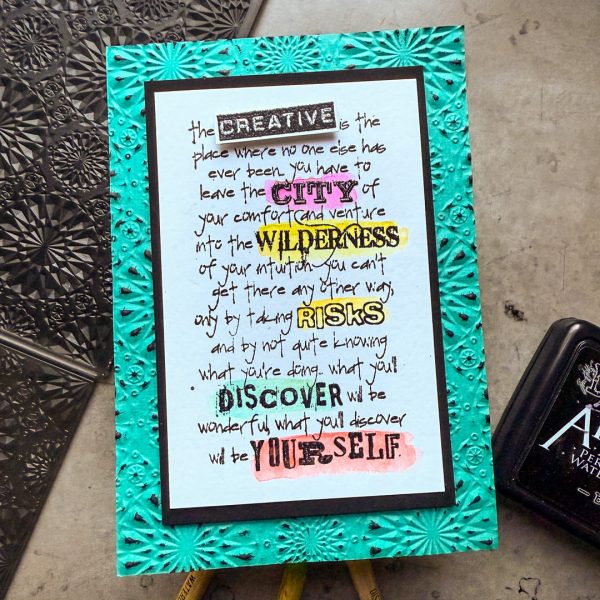 the CREATIVE is the
place where no one else has
ever been. you have to
leave the CITY of
your comfort and venture
into the WILDERNESS
of your intuition. you can't
get there any other way,
only by taking RISKS
and by not quite knowing
what you're doing. what you'll
DISCOVER will be
wonderful, what you'll discover
will be YOURSELF.